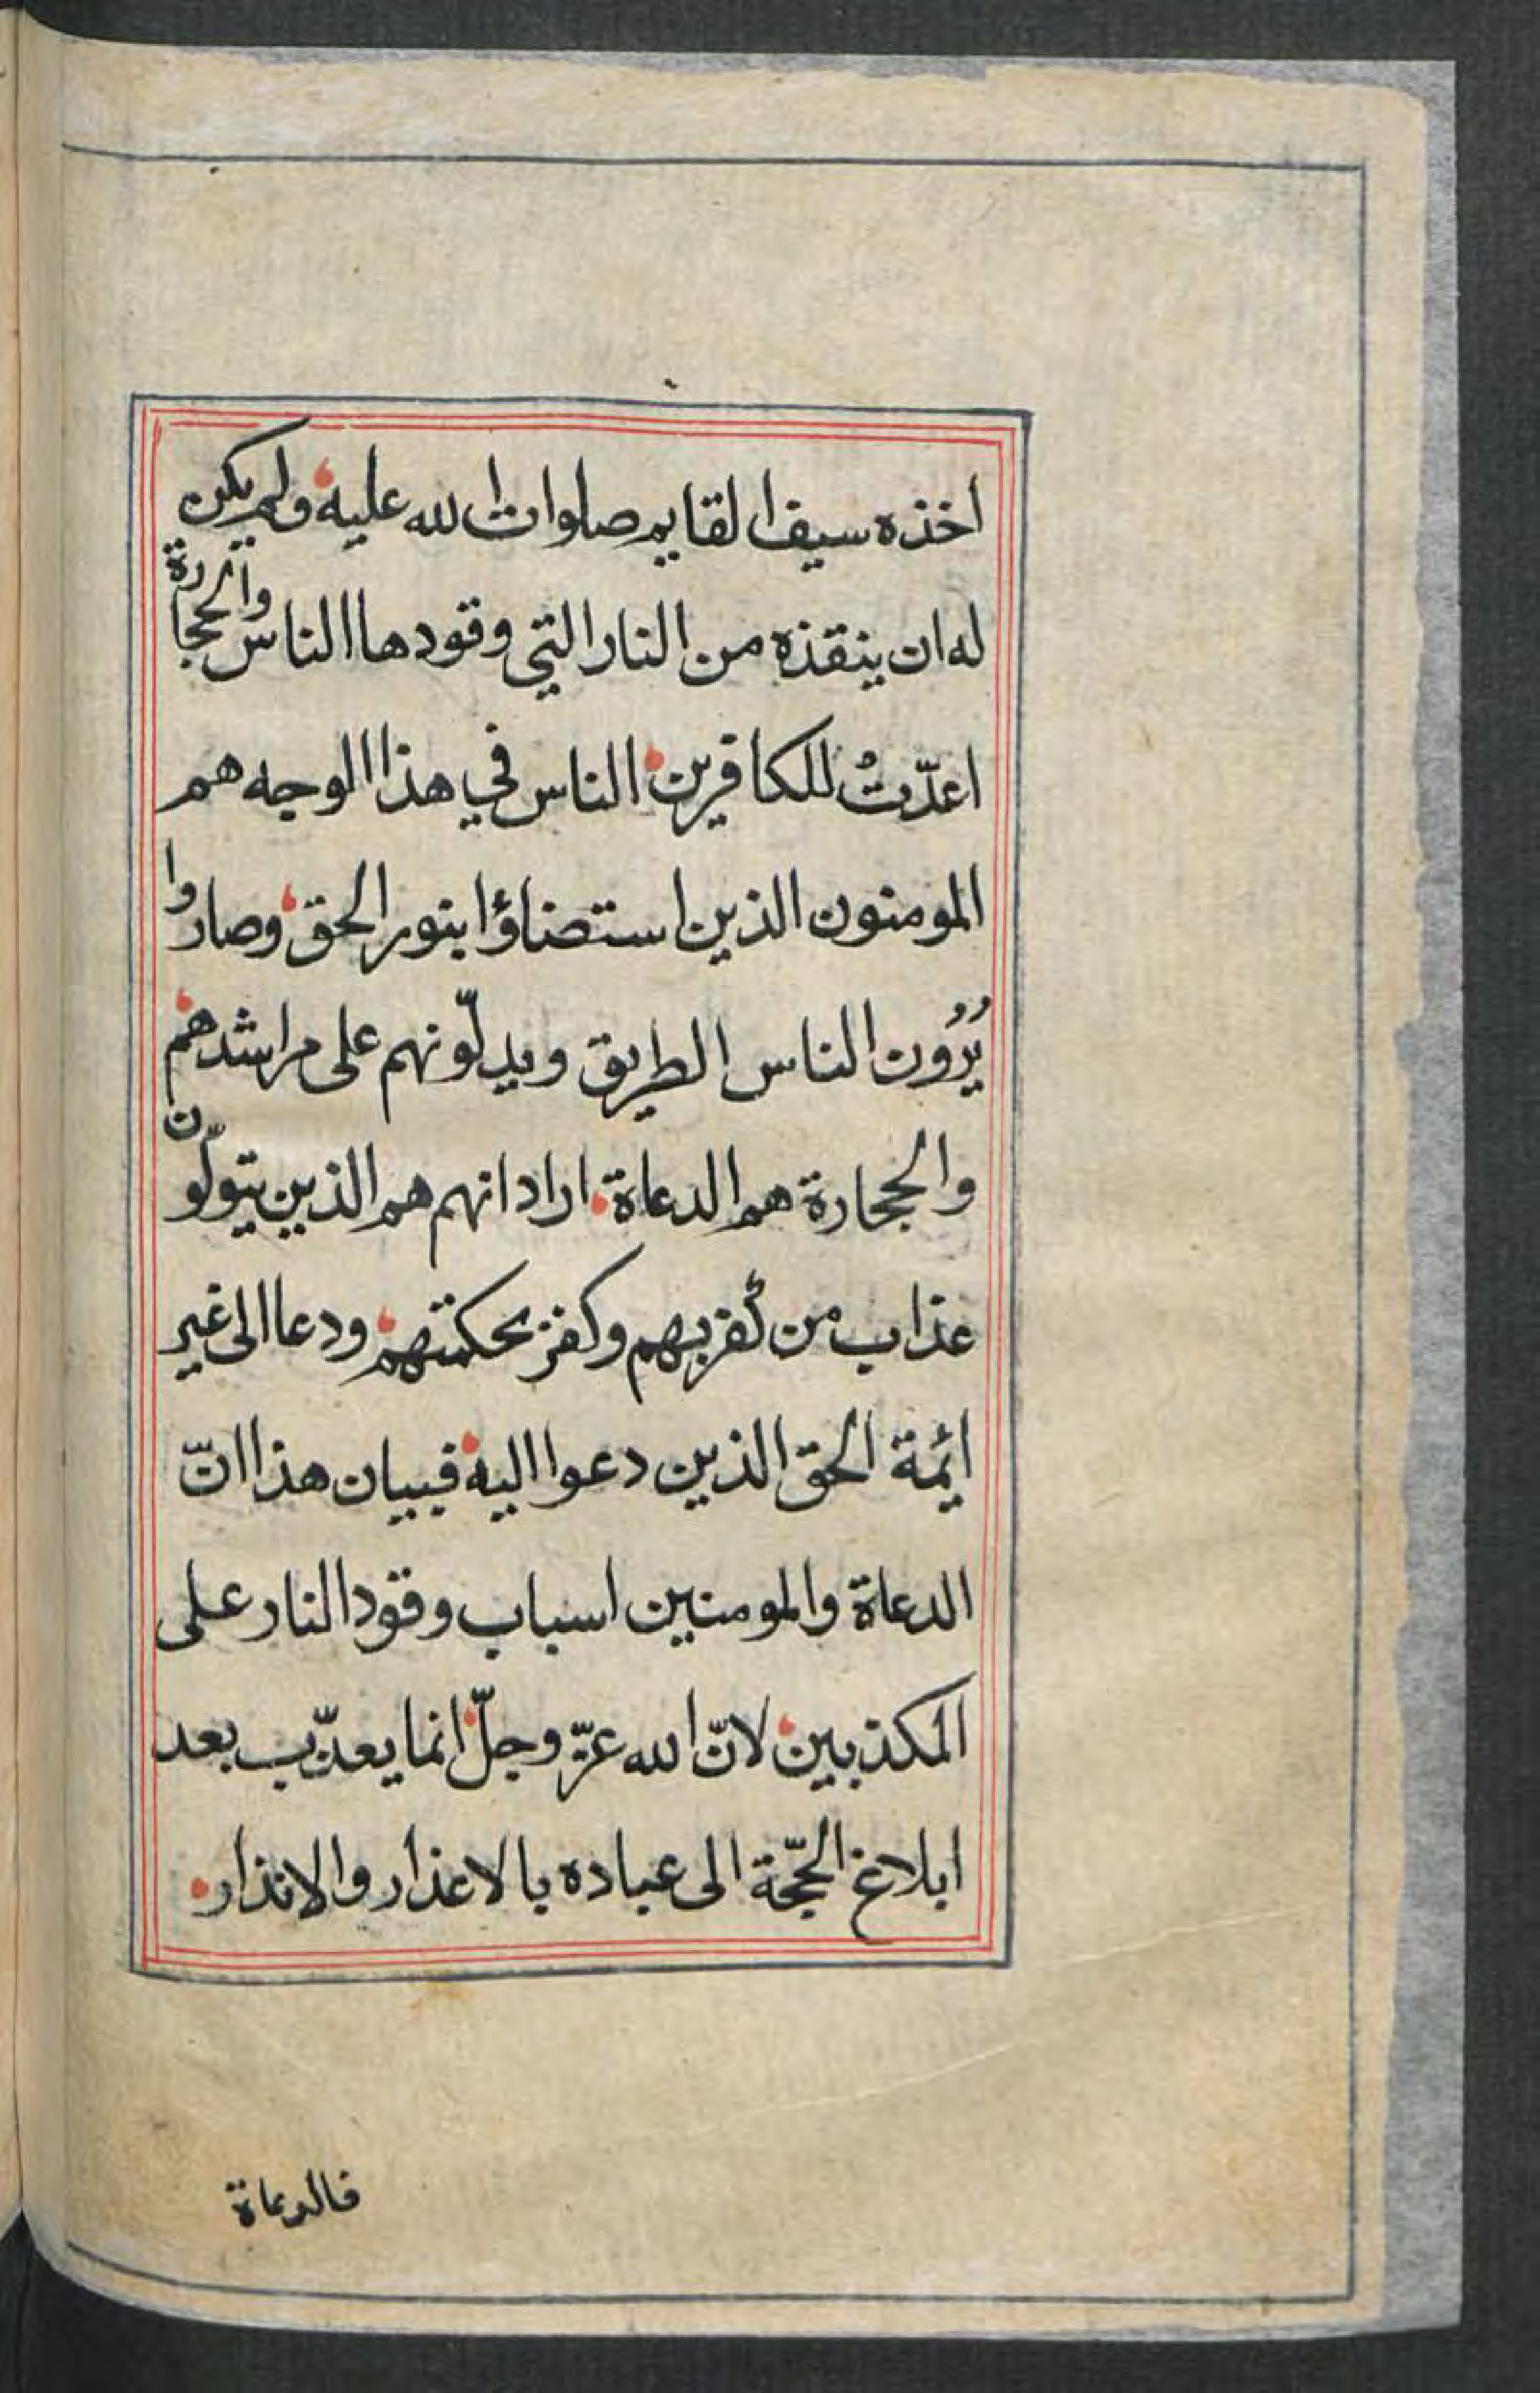 اخذه سيف القايم صلوات الله عليه ولم يكن
له ان ينقذه من النار التي وقودها الناس والحجارة
اعدّتْ للكافرين الناس في هذا الوجه هم
المومنون الذين استضاؤا بنور الحق وصاروا
يُرُون الناس الطريق ويدلّونهم على مراشدهم
والحجارة هم الدعاة اراد انهم هم الذين يتولّون
عذاب من كفر بهم وكفر بحكمتهم ودعا الى غير
ائمة الحق الذين دعوا اليه فبيان هذا انّ
الدعاة والمومنين اسباب وقود النار على
المكذبين لانّ الله عزّ وجلّ انما يعذّب بعد
ابلاغ الحجّة الى عباده بالاعذار والانذار
فالدعاة